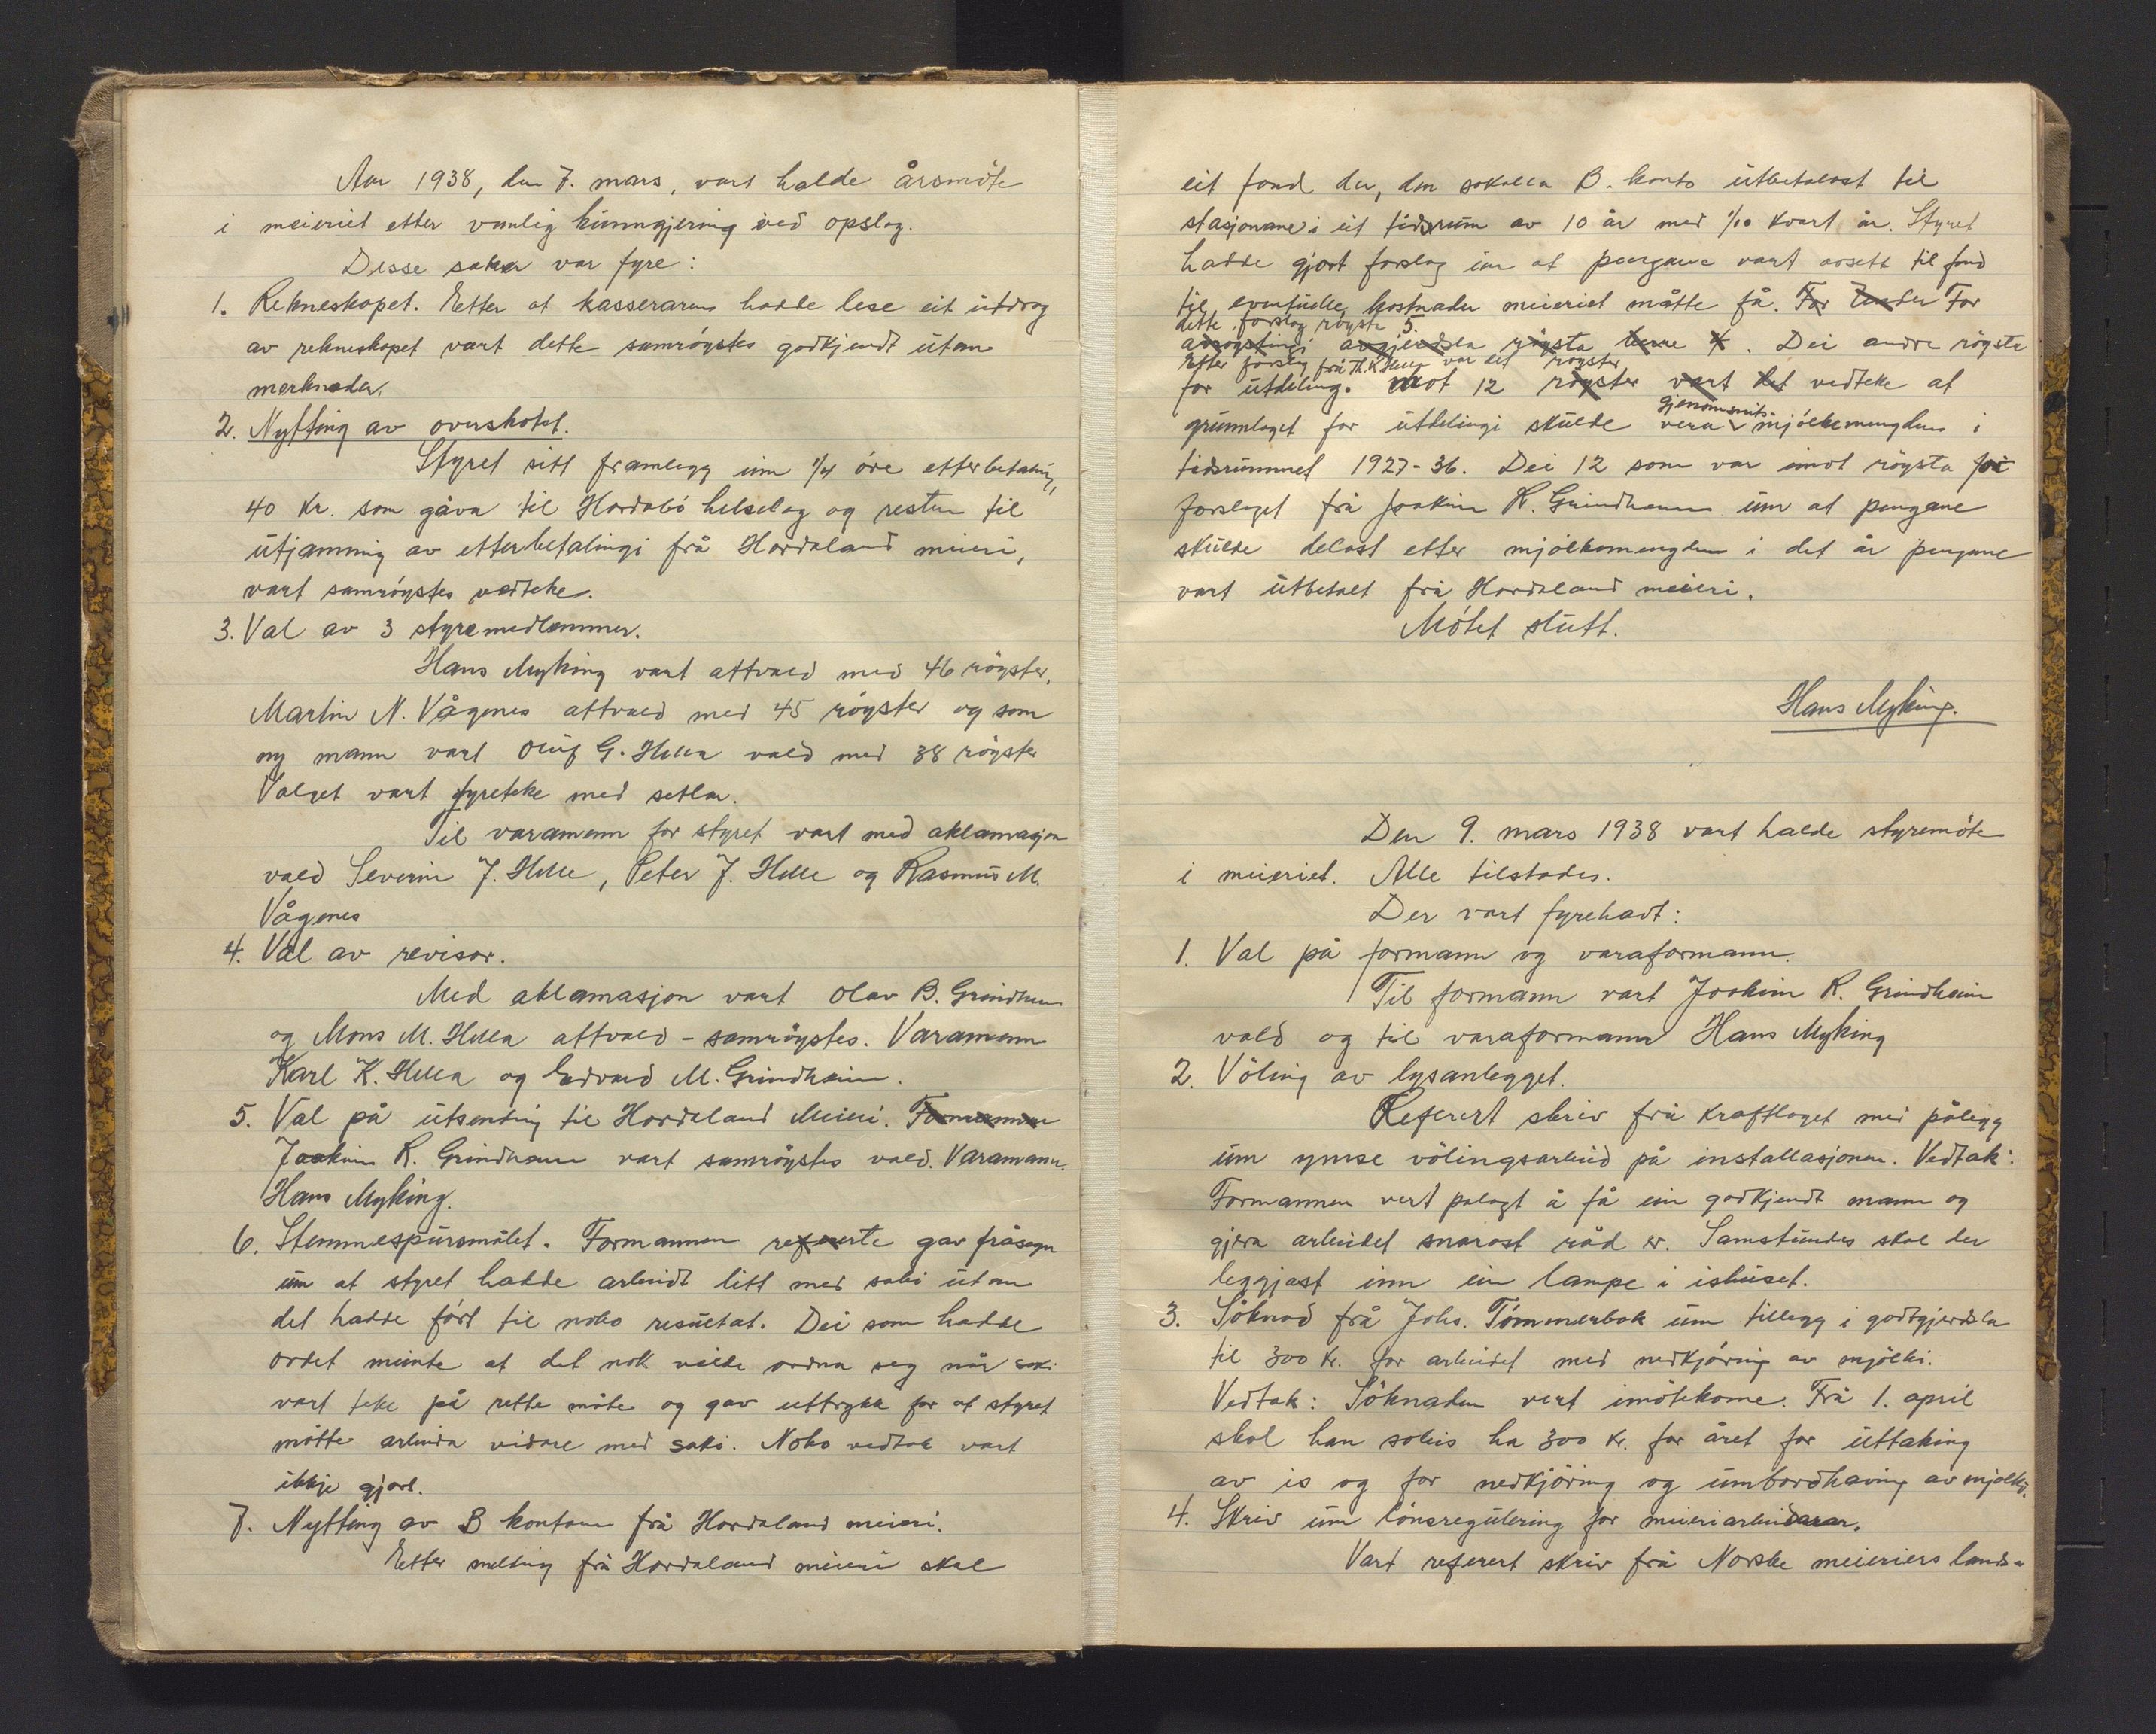 Aar 1938, den 7. mars, vart halde årsmöte
i meieriet etter vanlig kunngjering ved opslag.
Desse saker var fyre:
1. Rekneskapet. Etter at kasseraren hadde lese eit utdrag
av rekneskapet vart dette samröystes godkjendt utan
merknader.
2. Nytting av overskotet.
Styret sitt framlegg um 1/4 öre etterbetaling,
40 kr. som gåva til Hordabö helselag og resten til
utjamning av etterbetalingi frå Hordaland meieri,
vart samröystes vedteke.
3. Val av 3 styremedlemmer.
Hans Myking vart attvald med 46 röyster,
Martin N. Vågenes attvald med 45 röyster og som
ny mann vart Oluf G. Hella vald med 38 röyster
Valget vart fyreteke med setlar.
Til varamenn for styret vart med aklamasjon
vald Severin J. Helle, Peter J. Helle og Rasmus M.
Vågenes
4. Val av revisor.
Med aklamasjon vart Olav B. Grindheim
og Mons M. Hella attvald - samröystes. Varamenn
Karl K. Hella og Edvard M. Grindheim.
5. Val på utsending til Hordaland Meieri. Formannen
Joakim R. Grindheim vart samröystes vald. Varamann.
Hans Myking.
6. Stemmespursmålet. Formannen referte gav fråsegn
um at styret hadde arbeidt litt med saki utan
det hadde fört til noko resultat. Dei som hadde
ordet meinte at det nok vilde ordna seg når saki
vart teke på rette måte og gav uttrykk for at styret
måtte arbeida vidare med saki. Noko vedtak vart
ikkje gjort.
7. Nytting av B kontoen frå Hordaland meieri.
Etter melding frå Hordaland meieri skal
eit fond der, den sokalla B. konto utbetalast til
stasjonane i eit tidsrum av 10 år med 1/10 kvart år. Styret
hadde gjort forslag um at pengane vart avsett til fond
til eventuelle kostnader meieriet måtte få. For Under For
dette forslag röysta 5.
avröystingi avgjerdsla röysta berre 4. Dei andre röysta
Etter forslag frå Th. K. Helle var eit röyster
for utdeling. mot 12 röyster vart det vedteke at
gjenomsnits-
grunnlaget for utdelingi skulde vera mjölkemengden i
tidsrummet 1927-36. Dei 12 som var imot röysta for
forslaget frå Joakim R. Grindheim um at pengane
skulde delast etter mjölkemengden i det år pengane
vart utbetalt frå Hordaland meieri.
Mötet slutt.
Hans Myking.
Den 9. mars 1938 vart halde styremöte
i meieriet. Alle tilstades.
Der vart fyrehavt:
1. Val på formann og varaformann.
Til formann vart Joakim R. Grindheim
vald og til varaformann Hans Myking
2. Völing av lysanlegget.
Referert skriv frå kraftlaget med pålegg
um ymse völingsarbeid på installasjonen. Vedtak:
Formannen vert palagt å få ein godkjendt mann og
gjera arbeidet snarast råd er. Samstundes skal der
leggjast inn ein lampe i ishuset.
3. Söknad frå Johs. Tömmerbak um tillegg i godtgjerdsla
til 300 kr. for arbeidet med nedkjöring av mjölki.
Vedtak: Söknaden vert imötekome. Frå 1. april
skal han soleis ha 300 kr. for året for uttaking
av is og for nedkjöring og umbordhaving av mjolki.
4. Skriv um lönsregulering for meieriarbeidarar.
Vart referert skriv frå Norske meieriers lands-